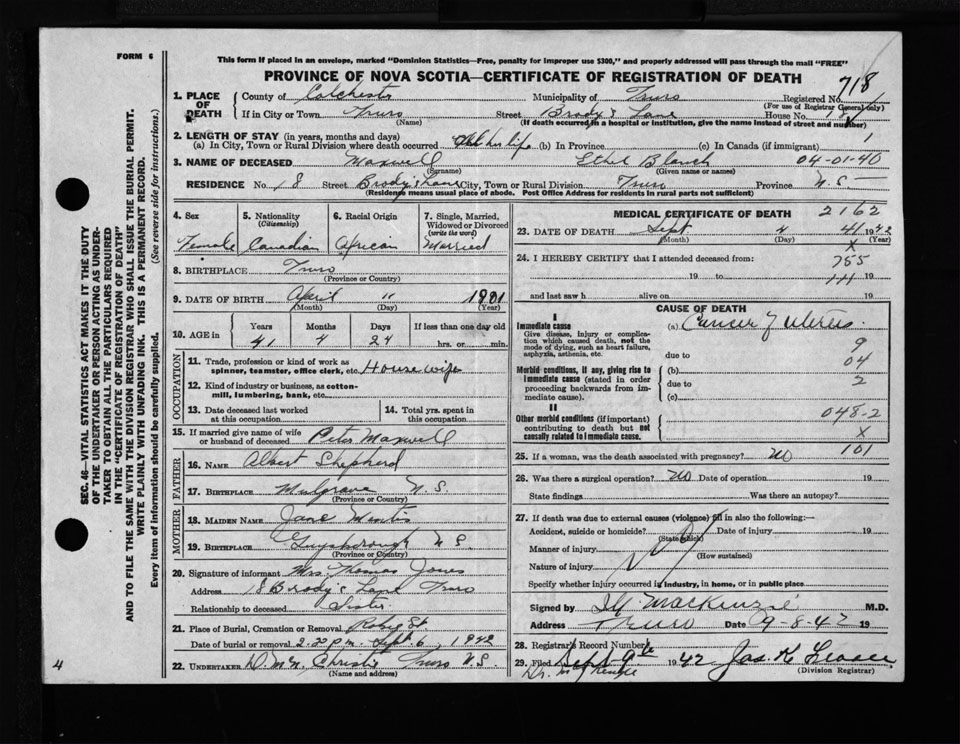 FORM 6
This form if placed in an envelope, marked "Dominion Statistics—Free, penalty for improper use $300," and properly addressed will pass through the mail "FREE"
PROVINCE OF NOVA SCOTIA—CERTIFICATE OF REGISTRATION OF DEATH
718
1. PLACE OF DEATH County of Colchester Municipality of Truro Registered No.
(For use of Registrar General only)
If in City or Town Truro Street Brody's Lane House No. 18
(Name) (If death occurred in a hospital or institution, give the name instead of street and number)
2. LENGTH OF STAY (in years, months and days)
(a) In City, Town or Rural Division where death occurred All her life (b) In Province (c) In Canada (if immigrant) 1
3. NAME OF DECEASED Maxwell Ethel Blanch 04-01-40
(Surname) (Given name or names)
RESIDENCE No. 18 Street Brody's Lane City, Town or Rural Division Truro Province N.S.
(Residence means usual place of abode. Post Office Address for residents in rural parts not sufficient)
4. Sex 5. Nationality (Citizenship) 6. Racial Origin 7. Single, Married, Widowed or Divorced (write the word)
Female Canadian African Married
8. BIRTHPLACE Truro
(Province or County)
9. DATE OF BIRTH April 11 1901
(Month) (Day) (Year)
10. AGE in Years Months Days If less than one day old
41 4 24 hrs. or min.
OCCUPATION
11. Trade, profession or kind of work as spinner, teamster, office clerk, etc. House wife
12. Kind of industry or business, as cotton-mill, lumbering, bank, etc.
13. Date deceased last worked at this occupation
14. Total yrs. spent in this occupation
15. If married give name of wife or husband of deceased Peter Maxwell
FATHER
16. NAME Albert Shepherd
17. BIRTHPLACE Mulgrave N.S.
(Province or County)
MOTHER
18. MAIDEN NAME Jane
19. BIRTHPLACE Guysborough N.S.
(Province or County)
20. Signature of informant Mrs. Thomas Jones
Address 18 Brody's Lane Truro
Relationship to deceased Sister
21. Place of Burial, Cremation or Removal Robie St
Date of burial or removal 2.30 p.m. Sept. 6, 1942
22. UNDERTAKER Christie Truro N.S.
(Name and address)
MEDICAL CERTIFICATE OF DEATH 2162
23. DATE OF DEATH Sept 4 41 1942
(Month) (Day) (Year)
x
24. I HEREBY CERTIFY that I attended deceased from:
755
19 to 19
and last saw h alive on 19
CAUSE OF DEATH
I
Immediate cause
Give disease, injury or complication which caused death, not the mode of dying, such as heart failure, asphyxia, asthenia, etc.
(a) Cancer of Uterus
9
due to
04
Morbid conditions, if any, giving rise to immediate cause (stated in order proceeding backwards from immediate cause).
(b)
due to 2
(c)
II
048-2
Other morbid conditions (if important) contributing to death but not causally related to immediate cause.
x
25. If a woman, was the death associated with pregnancy? No 101
26. Was there a surgical operation? No Date of operation 19
State findings Was there an autopsy?
27. If death was due to external causes (violence) fill in also the following:—
Accident, suicide or homicide? Date of injury 19
(State which)
Manner of injury
(How sustained)
Nature of injury
Specify whether injury occurred in industry, in home, or in public place
Signed by MacKenzie M.D.
Address Truro Date 9-8-42 19
28. Registrar's Record Number
29. Filed Sept 9th 1942 Jas. K.
(Division Registrar)
SEC. 48—VITAL STATISTICS ACT MAKES IT THE DUTY
OF THE UNDERTAKER OR PERSON ACTING AS UNDER-
TAKER TO OBTAIN ALL THE PARTICULARS REQUIRED
IN THE "CERTIFICATE OF REGISTRATION OF DEATH"
AND TO FILE THE SAME WITH THE DIVISION REGISTRAR WHO SHALL ISSUE THE BURIAL PERMIT.
WRITE PLAINLY WITH UNFADING INK. THIS IS A PERMANENT RECORD.
Every item of information should be carefully supplied. (See reverse side for instructions.)
4